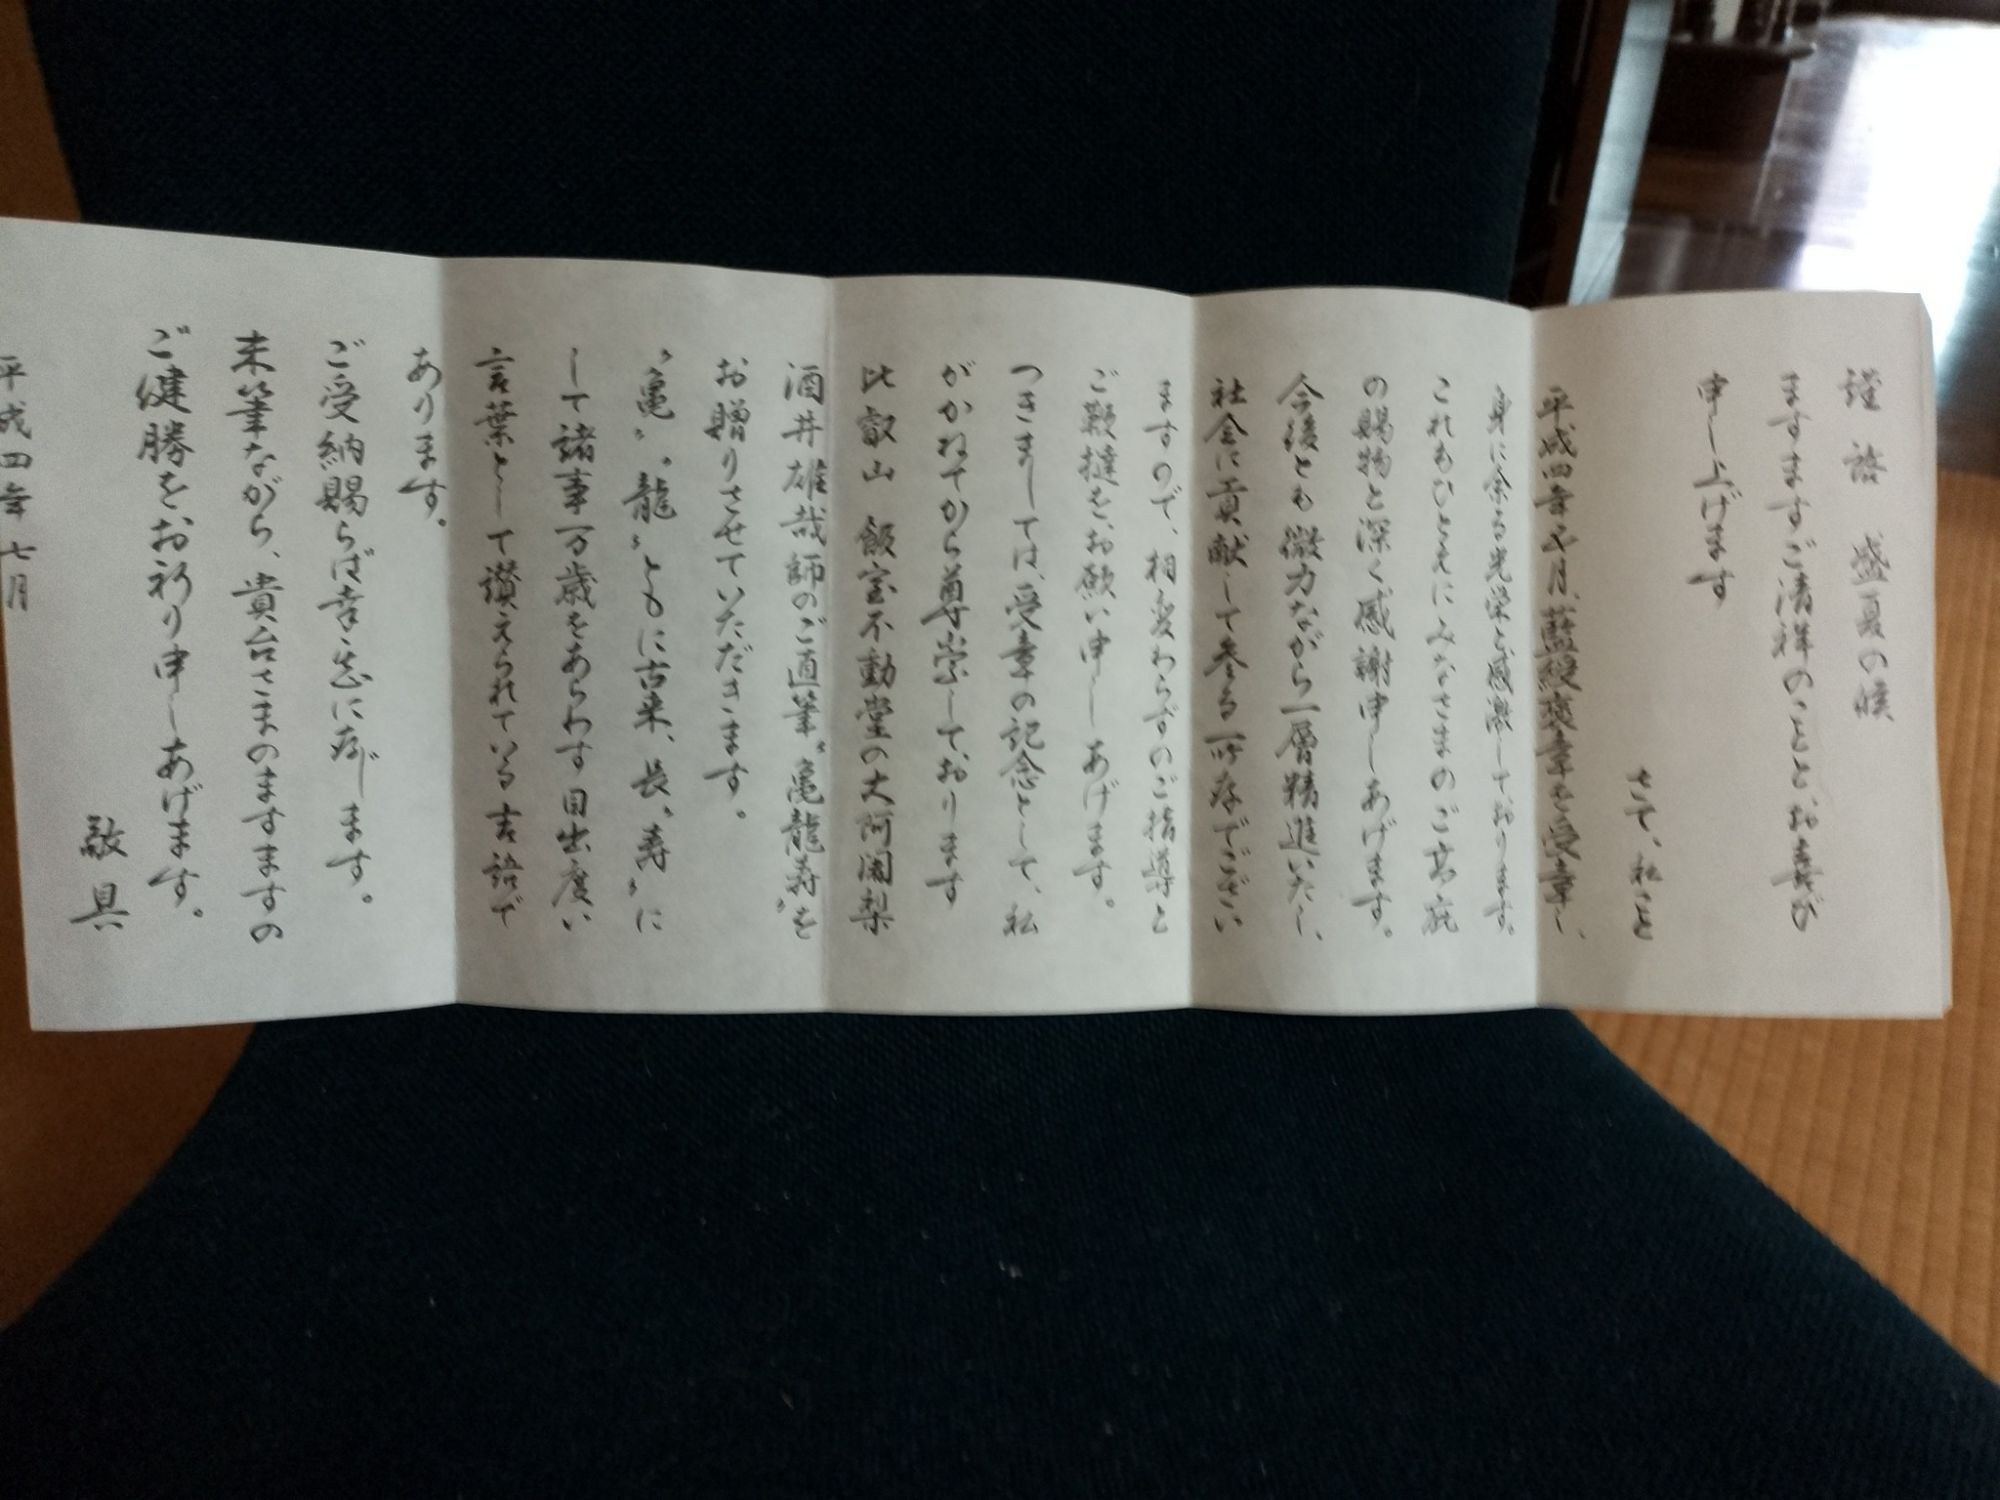 謹啓　盛夏の候
ますますご清祥のこととお喜び
申し上げます
さて、私こと
平成四年五月、藍綬褒章を受章し、
身に余る光栄と感激しております。
これもひとえにみなさまのご高庇
の賜物と深く感謝申しあげます。
今後とも微力ながら一層精進いたし、
社会に貢献して参る所存でござい
ますので、相変わらずのご指導と
ご鞭撻を、お願い申しあげます。
つきましては、受章の記念として、私
がかねてから尊崇しております
比叡山　飯室不動堂の大阿闍梨
酒井雄哉師のご直筆〝亀龍寿〟を
お贈りさせていただきます。
〝亀〟〝龍〟ともに古来、長〝寿〟に
して諸事万歳をあらわす目出度い
言葉として讃えられている言語で
あります。
ご受納賜らば幸甚に存じます。
末筆ながら、貴台さまのますますの
ご健勝をお祈り申しあげます。
敬具
平成四年七月